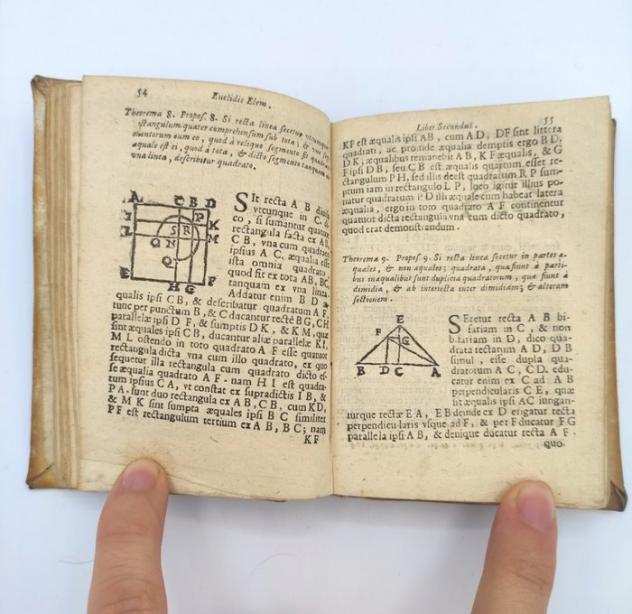 54
Euclidis Elem.
Theorema 8. Propos. 8. Si recta linea secetur utcumque
ctangulum quater comprehensum sub tota, & uno seg-
mentorum cum eo, quod à reliquo segmento fit quadrato,
æquale est ei, quod à tota, & dicto segmento tanquam ex
vna linea, describitur quadrato.
A C B D
P
L K
S R
M
O N
Q
E H G F
SIt recta A B diuisa
vtcunque in C. di-
co, si sumantur quatuor
rectangula facta ex AB,
C B, vna cum quadrato
ipsius A C, æqualia esse
ista omnia quadrato,
quod fit ex tota AB, BC,
tanquam ex vna linea.
Addatur enim B D æ-
qualis ipsi C B, & describatur quadratum A F,
tunc per punctum B, & C ducantur rectę BG, CH
parallelæ ipsi D F, & sumptis D K, & K M, quæ
sint æquales ipsi CB, ducantur aliæ parallelæ KI,
M L ostendo in toto quadrato A F esse quatuor
rectangula dicta vna cum illo quadrato, ex quo
sequetur illa rectangula cum quadrato dicto es-
se æqualia quadrato A F. nam H I est quadra-
tum ipsius CA, vt constat ex supradictis I B, &
PA. sunt duo rectangula ex AB, CB, cum KD,
& M K sint sumpta æquales ipsi B C similiter
PF est rectangulum tertium ex A B, B C; nam
KF
Liber Secundus.
55
KF est æqualis ipsi AB, cum A D, DF sint littera
quadrati, ac proinde æqualia demptis ergo B D,
D K, æqualibus remanebit A B, K F æqualis, & G
F ipsi D B, seu C B est æqualis quartum esset re-
ctangulum P H, sed illi deest quadratum R P sum-
ptum iam in rectangulo L P, loco igitur illius po-
natur quadratum P D illi æquale cum habeat latera
æqualia, ergo in toto quadrato A F continentur
quatuor dicta rectangula vna cum dicto quadrato,
quod erat demonstrandum.
Theorema 9. Propos 9. Si recta linea secetur in partes æ-
quales, & non æquales; quadrata, quæ fiunt à parti-
bus inæqualibus sunt duplicia quadratorum, quæ fiunt à
dimidia, & ab interiecta inter dimidiam, & alteram
sectionem.
E
F
G
B D C A
SEcetur recta A B bi-
fariam in C, & non
bifariam in D, dico qua-
drata rectarum A D, D B
simul, esse dupla qua-
dratorum A C, C D. edu-
catur enim ex C ad A B
perpendicularis C E, quæ
sit æqualis ipsi AC iungan-
turque rectæ E A, E B deinde ex D erigatur recta
perpendicularis vsque ad F, & per F ducatur F G
parallela ipsi A B, & denique ducatur recta A F.
quo